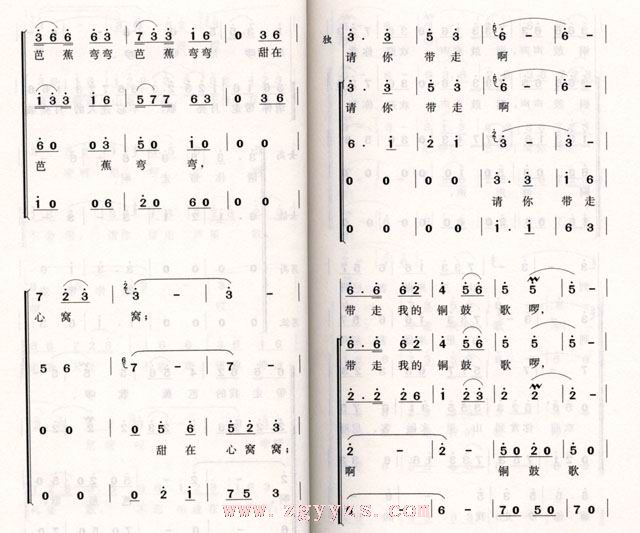 3 6 6 6 3 | 7 3 3 1 6 | 0 0 3 6 |
芭 蕉 弯弯 芭 蕉 弯 弯 甜在
1 3 3 1 6 | 5 7 7 6 3 | 0 3 6 |
6 0 0 3 | 5 0 1 0 | 0 0 |
芭 蕉 弯 弯,
1 0 0 6 | 2 0 6 0 | 0 0 |
7 2 3 | 3 - | 3 - |
心 窝 窝;
5 6 | 7 - | 7 - |
0 0 | 0 5 6 | 5 2 3 |
甜 在 心 窝 窝;
0 0 | 0 2 1 | 7 5 3 |
独 3 . 3 | 5 3 | 6 | 6 - |
请 你 带 走 啊
3 . 3 | 5 3 | 6 - | 6 - |
请 你 带 走 啊
6 . 1 | 1 2 | 3 - | 3 - |
0 0 | 0 0 | 3 . 3 | 1 6 |
请 你 带 走
0 0 | 0 0 | 1 . 1 | 6 3 |
6 . 6 6 2 | 4 5 6 | 5 5 | 5 - |
带 走 我的 铜 鼓 歌 啰,
6 . 6 6 2 | 4 5 6 | 5 5 | 5 - |
带 走 我的 铜 鼓 歌 啰,
2 . 2 2 6 | 1 2 3 | 2 2 | 2 - |
2 - | 2 - | 5 0 2 0 | 5 0 |
啊 铜 鼓 歌
6 - | 7 0 5 0 | 7 0 |
www.zgyyzs.com